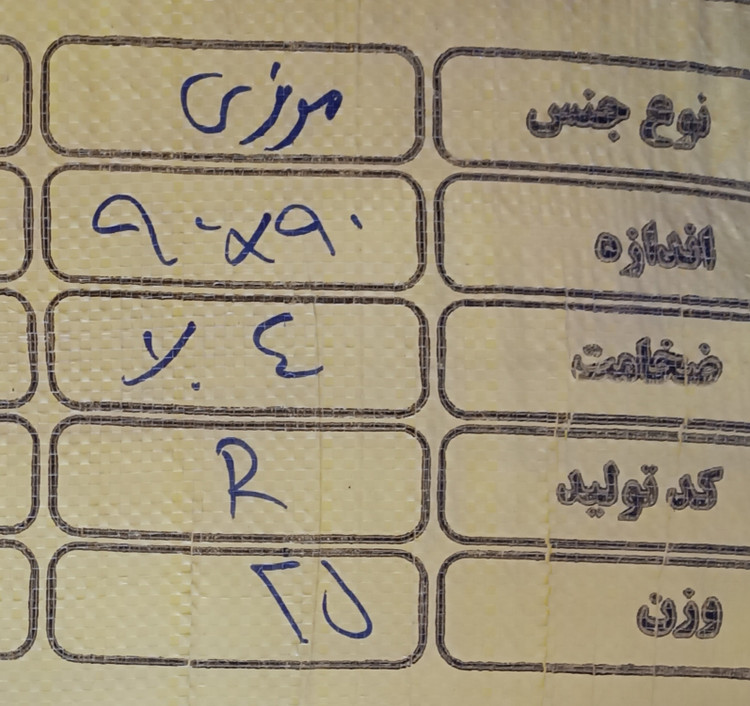 نوع جنس موزی
اندازه ۹۰×۹۰
ضخامت ٤
کد تولید R
وزن